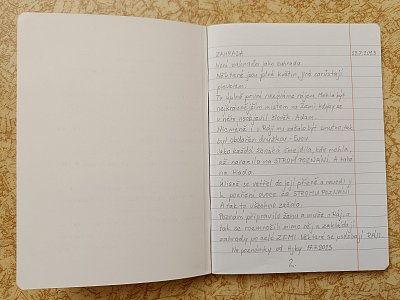 ZAHRADA 17.7.2023
Není zahrada jako zahrada
Některé jsou plné květin, jiné zarůstají
plevelem.
Tu úplně první nazváme rájem. Mohla být
nejkrásnějším místem na Zemi, kdyby se
v něm neobjevil člověk Adam.
Nicméně i v Ráji mu začalo být smutno, tak
byl obdařen družkou - Evou.
Jako každá ženská čmuchila, kde mohla,
až narazila na STROM POZNÁNÍ. A také
na Hada.
Klidně se vetřel do její přízně a navedl ji
k požření OVOCE ZE STROMU POZNÁNÍ.
A tak to všechno začalo.
Poznání připravilo ženu a muže o Ráj a
tak se rozmnožili mimo něj a zakládají
zahrady po celé ZEMI. Některé se podobají RÁJI.
Na poznámky od 17.7.2023
2.